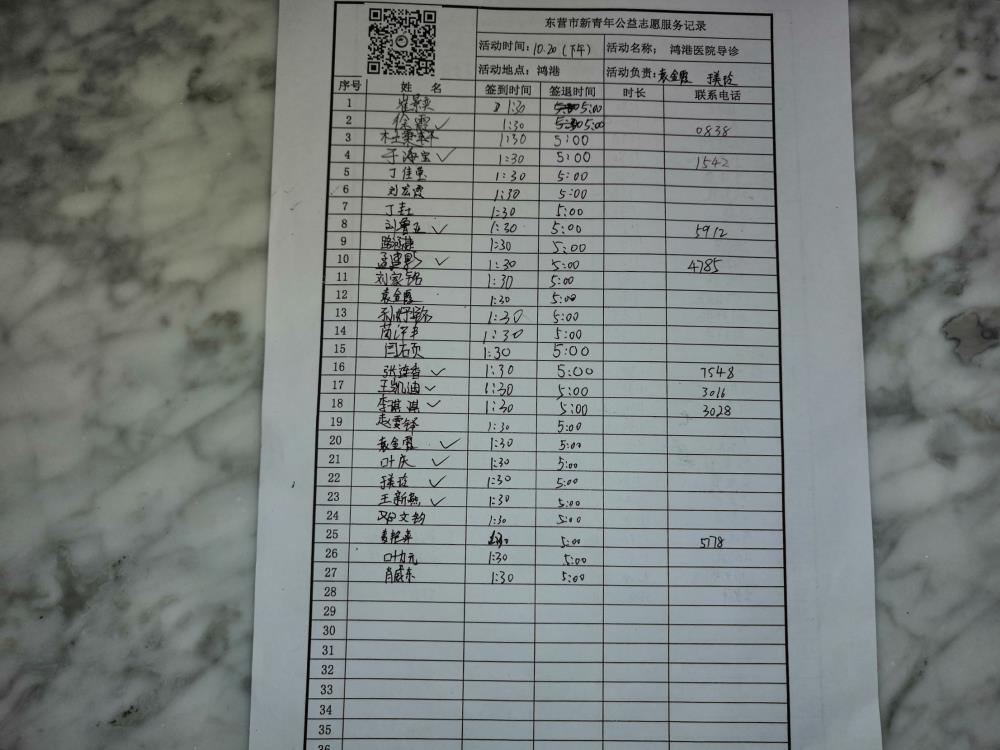 东营市新青年公益志愿服务记录
活动时间：10.20（下午） 活动名称： 鸿港医院导诊
活动地点：鸿港 活动负责：袁金霞
序号 姓 名 签到时间 签退时间 时长 联系电话
1 1:30 5:00
2 徐霞 ✓ 1:30 5:00 0838
3 1:30 5:00
4 于海宝 ✓ 1:30 5:00 1542
5 丁佳慧 1:30 5:00
6 刘宏霞 1:30 5:00
7 1:30 5:00
8 ✓ 1:30 5:00 5912
9 1:30 5:00
10 ✓ 1:30 5:00 4785
11 刘家铭 1:30 5:00
12 袁金霞 1:30 5:00
13 1:30 5:00
14 1:30 5:00
15 闫石页 1:30 5:00
16 张连香 ✓ 1:30 5:00 7548
17 王凯迪 ✓ 1:30 5:00 3016
18 李琪琪 ✓ 1:30 5:00 3028
19 赵雯铎 1:30 5:00
20 袁金霞 ✓ 1:30 5:00
21 叶庆 ✓ 1:30 5:00
22 ✓ 1:30 5:00
23 王新燕 ✓ 1:30 5:00
24 1:30 5:00
25 5:00 5178
26 叶力元 1:30 5:00
27 肖威东 1:30 5:00
28
29
30
31
32
33
34
35
36